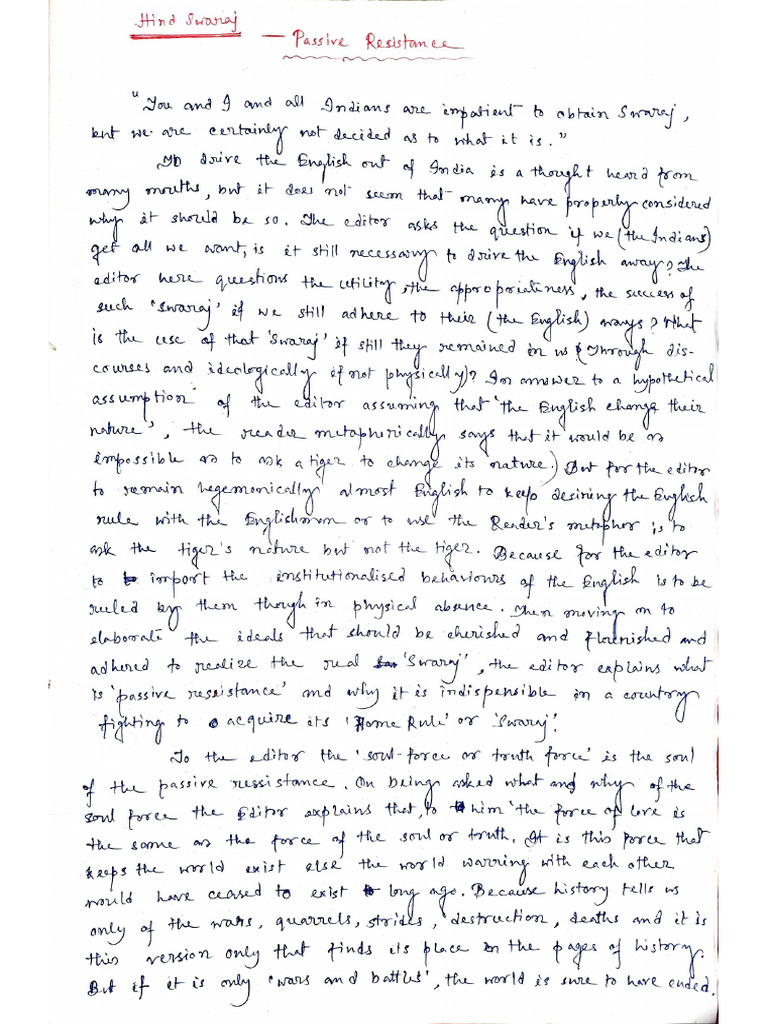 Hind Swaraj
— Passive Resistance
"You and I and all Indians are impatient to obtain Swaraj,
but we are certainly not decided as to what it is."
To drive the English out of India is a thought heard from
many mouths, but it does not seem that many have properly considered
why it should be so. The editor asks the question if we (the Indians)
get all we want, is it still necessary to drive the English away? The
editor here questions the utility, the appropriateness, the success of
such 'swaraj' if we still adhere to their (the English) ways? What
is the use of that 'swaraj' if still they remained in us (through dis-
courses and ideologically if not physically)? In answer to a hypothetical
assumption of the editor assuming that 'the English change their
nature', the reader metaphorically says that it would be as
impossible as to ask a tiger to change its nature.) But for the editor
to remain hegemonically almost English to keep desiring the English
rule with the Englishman or to use the Reader's metaphor is to
ask the tiger's nature but not the tiger. Because for the editor
to import the institutionalised behaviours of the English is to be
ruled by them though in physical absence. Then moving on to
elaborate the ideals that should be cherished and flourished and
adhered to realize the real 'Swaraj', the editor explains what
is 'passive ressistance' and why it is indispensible in a country
fighting to acquire its 'Home Rule' or 'Swaraj'.
To the editor the 'soul-force or truth force' is the soul
of the passive ressistance. On being asked what and why of the
soul force the Editor explains that, to him 'the force of love is
the same as the force of the soul or truth. It is this force that
keeps the world exist else the world warring with each other
would have ceased to exist long ago. Because history tells us
only of the wars, quarrels, strides, destruction, deaths and it is
this version only that finds its place in the pages of history.
But if it is only 'wars and battles', the world is sure to have ended.